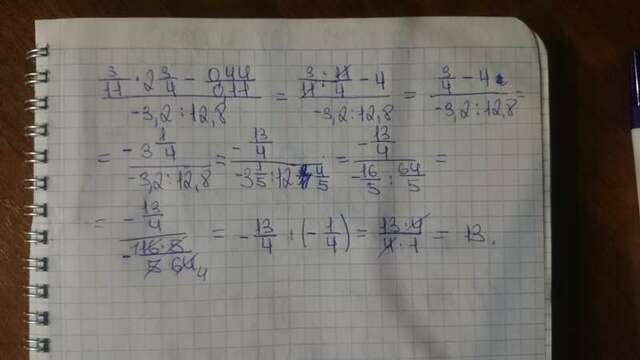 3/11 · 2 3/4 − 0,44/0,11 / −3,2 : 12,8 = 3 · 11/11 · 4 − 4 / −3,2 : 12,8 = 3/4 − 4 / −3,2 : 12,8 =
= −3 1/4 / −3,2 : 12,8 = −13/4 / −3 1/5 : 12 4/5 = −13/4 / −16/5 : 64/5 =
= −13/4 / −16 · 5/5 · 64 4 = −13/4 : (−1/4) = 13 · 4/4 · 1 = 13.